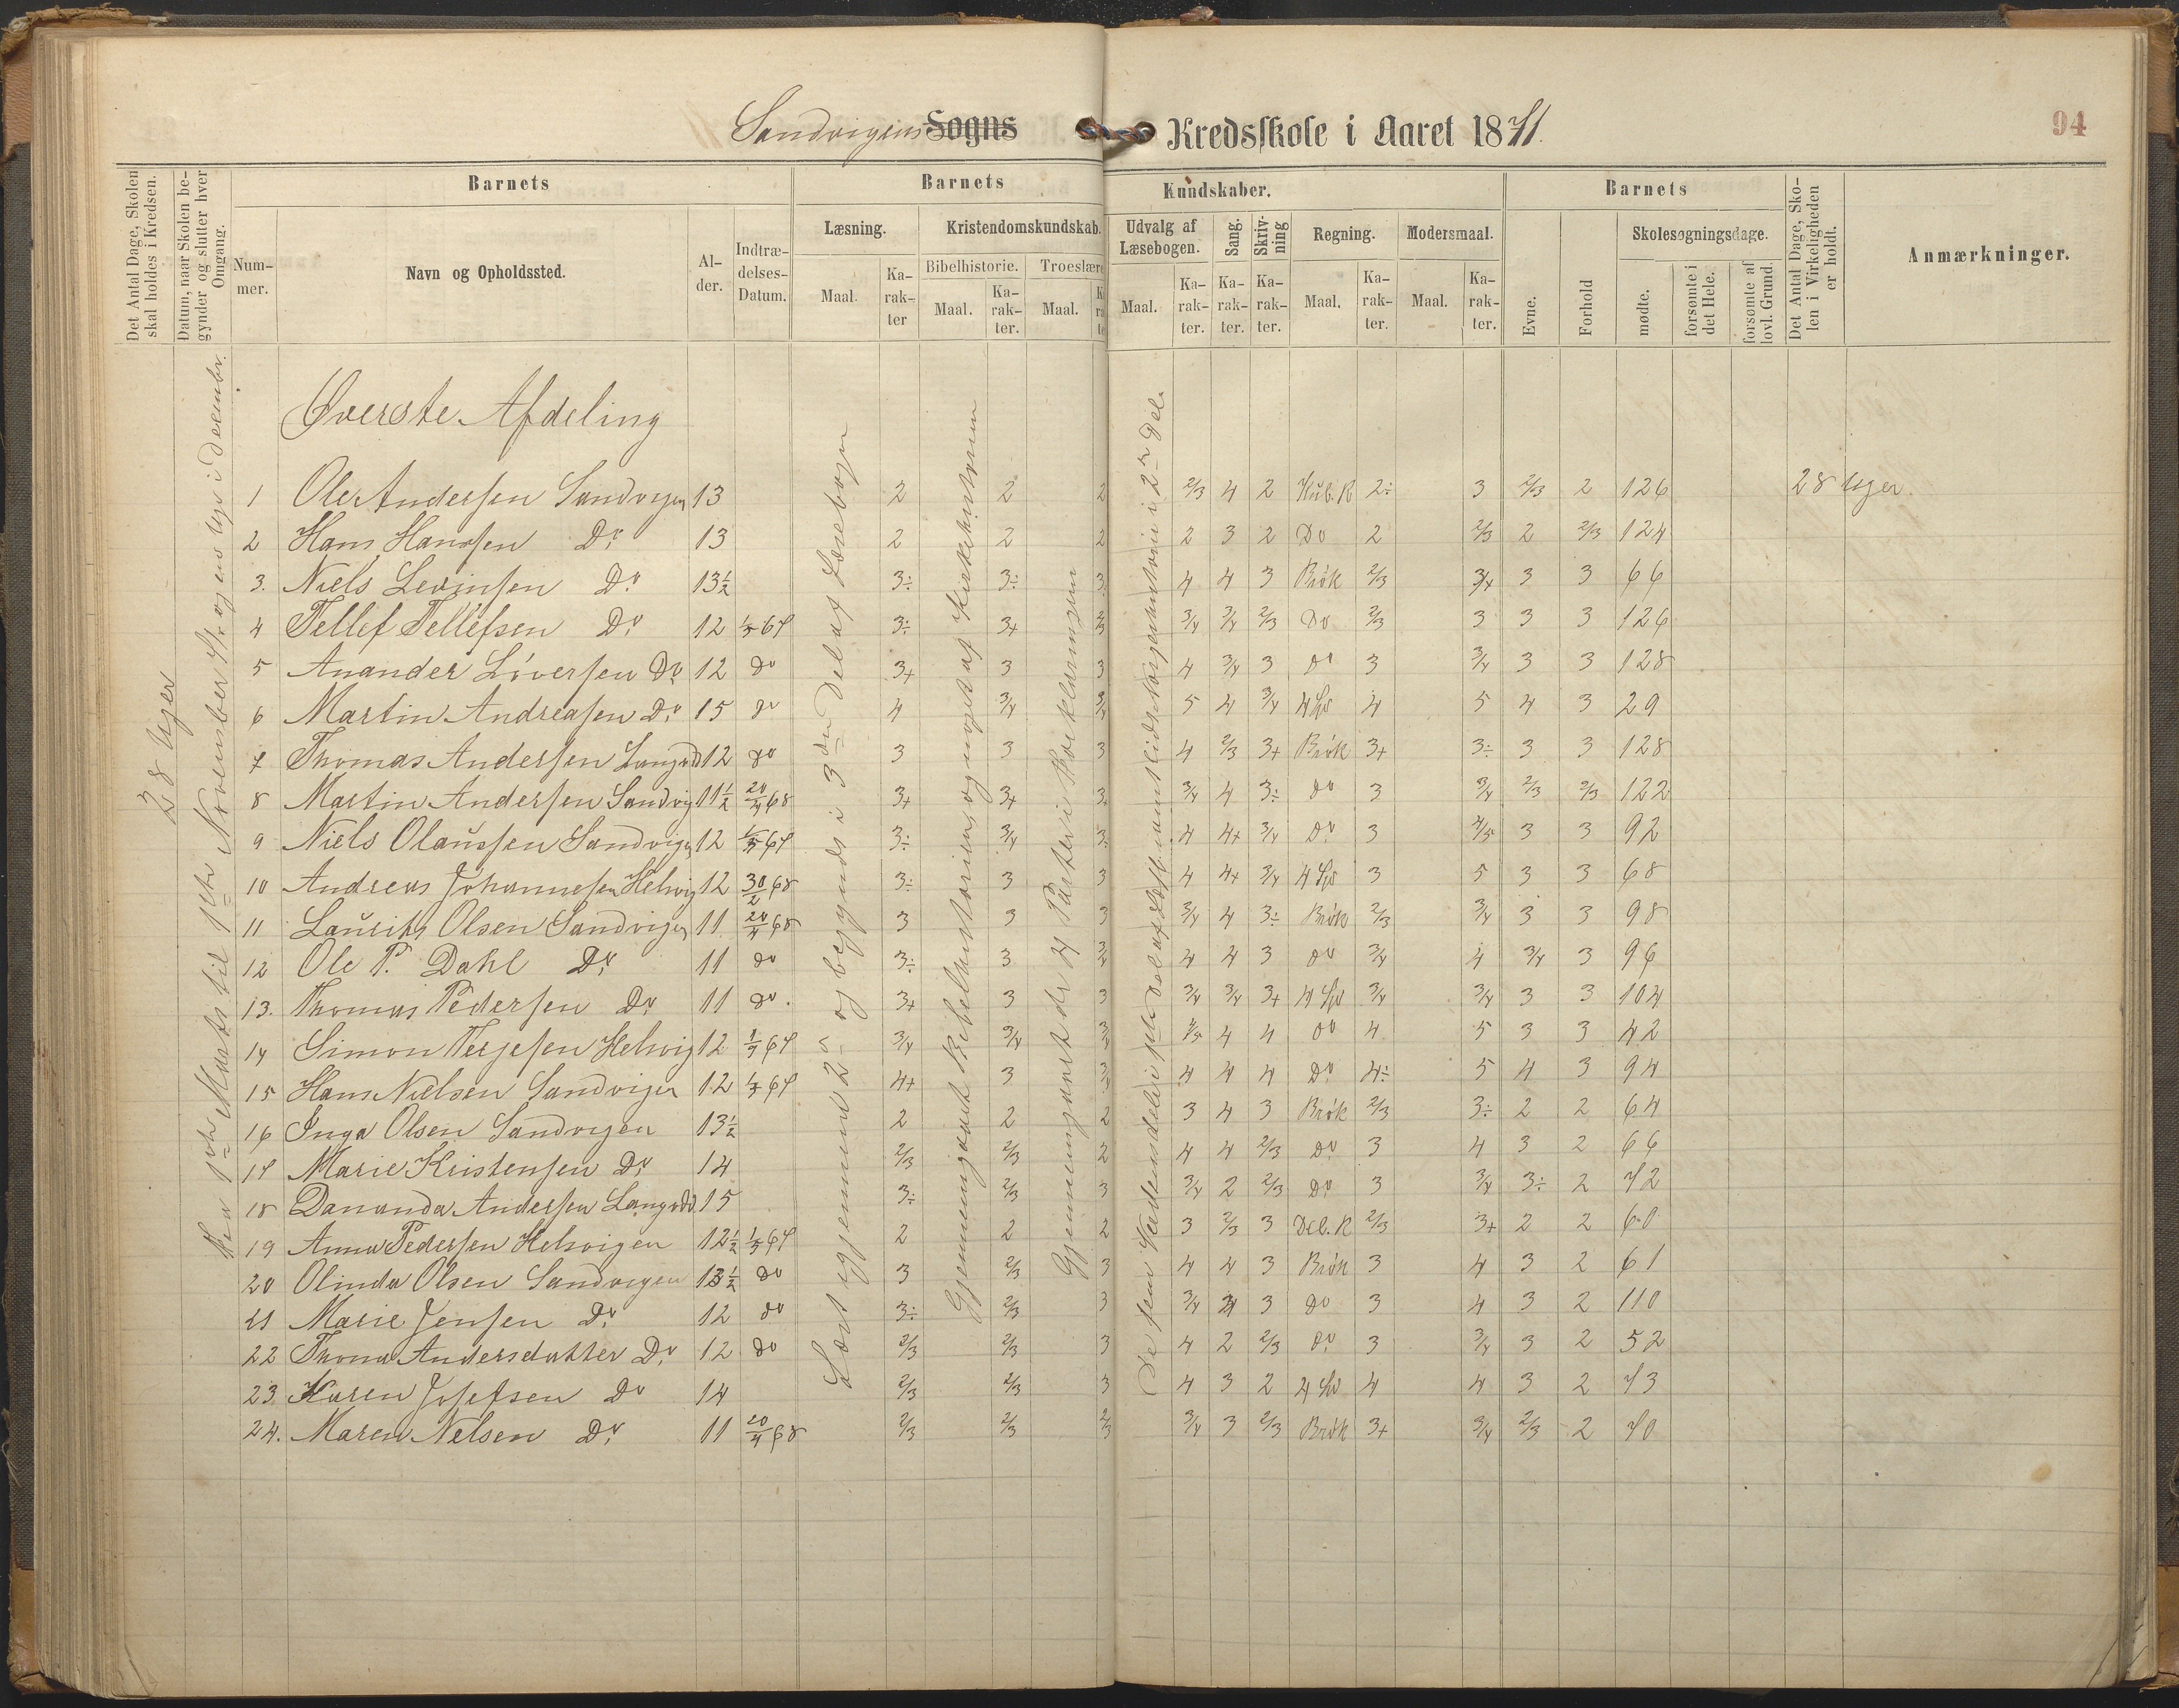 Sandvigens Sogns Kredsskole i Aaret 1871.
94
Det Antal Dage, Skolen skal holdes i Kredsen.
Datum, naar Skolen begynder og slutter hver Omgang.
Barnets
Barnets
Kundskaber.
Barnets
Det Antal Dage, Skolen i Virkeligheden er holdt.
Anmærkninger.
Nummer.
Navn og Opholdssted.
Alder.
Indtrædelses-Datum.
Læsning.
Kristendomskundskab.
Udvalg af Læsebogen.
Sang.
Skrivning
Regning.
Modersmaal.
Evne.
Forhold
Skolesøgningsdage.
Bibelhistorie.
Troeslære
Maal.
Karakter
Maal.
Karakter.
Maal.
Maal.
Karakter.
Karakter.
Karakter.
Maal.
Karakter.
Maal.
Karakter.
mødte.
forsømte i det Hele.
forsømte af lovl. Grund.
28 Uger
Fra 1ste Marts til 1ste November og en Uge i Decembr.
Øverste Afdeling
Læst igjennem 2den og begyndt i 3die Del af Læsebogen
Gjennemgaaet Bibelhistorien og noget af Kirkehistorien
Gjennemgaaet de 4 Parter i Forklaringen
1 Ole Andersen Sandvigen 13 2 2 2 2/3 4 2 Kub. R 2÷ 3 2/3 2 126 28 Uger.
2 Hans Hanssen Do 13 2 2 2 2 3 2 Do 2 2/3 2 2/3 124
3. Niels Levinsen Do 13½ 3÷ 3÷ 3 4 4 3 Brøk 2/3 3/4 3 3 66
4 Tellef Tellefsen Do 12 3÷ 3+ 2/3 3/4 3/4 2/3 Do 2/3 3 3 3 126
5 Anander Løversen Do 12 do 3+ 3 3 4 3/4 3 Do 3 3/4 3 3 128
6 Martin Andreasen Do 15 do 4 3/4 3/4 5 4 3/4 4 Sp 4 5 4 3 29
7 Thomas Andersen 12 do 3 3 3 4 2/3 3+ Brøk 3+ 3÷ 3 3 128
8 Martin Andersen Sandvig 11½ 20/4 68 3+ 3+ 3+ 3/4 4 3÷ do 3 3/4 2/3 2/3 122
9 Niels Olaussen Sandvigen 12 3÷ 3/4 3÷ 4 4+ 3/4 Do 3 4/5 3 3 92
10 Andreas Johannesen Helvig 12 30/2 68 3÷ 3 3 4 4+ 3/4 4 Sp 3 5 3 3 68
11 Laurits Olsen Sandvigen 11 20/4 68 3 3 3 3/4 4 3÷ Brøk 2/3 3/4 3 3 98
12 Ole P. Dahl Do 11 do 3÷ 3 3/4 4 4 3 do 3/4 4 3/4 3 96
13. Thomas Pedersen Do 11 do. 3+ 3 3 3/4 3/4 3+ 4 Sp 3/4 3/4 3 3 104
14 Simon Terjesen Helvig 12 3/4 3/4 3/4 4/5 4 4 do 4 5 3 3 42
15 Hans Nielsen Sandvigen 12 4+ 3 3/4 4 4 4 Do 4÷ 5 4 3 94
16 Inga Olsen Sandvigen 13½ 2 2 2 3 4 3 Brøk 2/3 3÷ 2 2 64
17 Marie Kristensen Do 14 2/3 2/3 2 4 4 2/3 Do 3 4 3 2 66
18 Dananda Andersen 15 3÷ 2/3 3 3/4 2 2/3 Do 3 3/4 3÷ 2 72
19 Anna Pedersen Helvigen 12½ 2 2 2 3 2/3 3 Del. R 2/3 3+ 2 2 60
20 Olinda Olsen Sandvigen 13½ do 3 2/3 3 4 4 3 Brøk 3 4 3 2 61
21 Marie Jensen Do 12 do 3÷ 2/3 3 3/4 3 Do 3 4 3 2 110
22 Thona Andersdatter Do 12 do 2/3 2/3 3 4 2 2/3 Do 3 3/4 3 2 52
23 Karen Josefsen Do 14 2/3 2/3 3 4 3 2 4 Sp 4 4 3 2 73
24. Maren Nelsen Do 11 20/4 68 2/3 2/3 2/3 3/4 3 2/3 Brøk 3+ 3/4 2/3 2 70